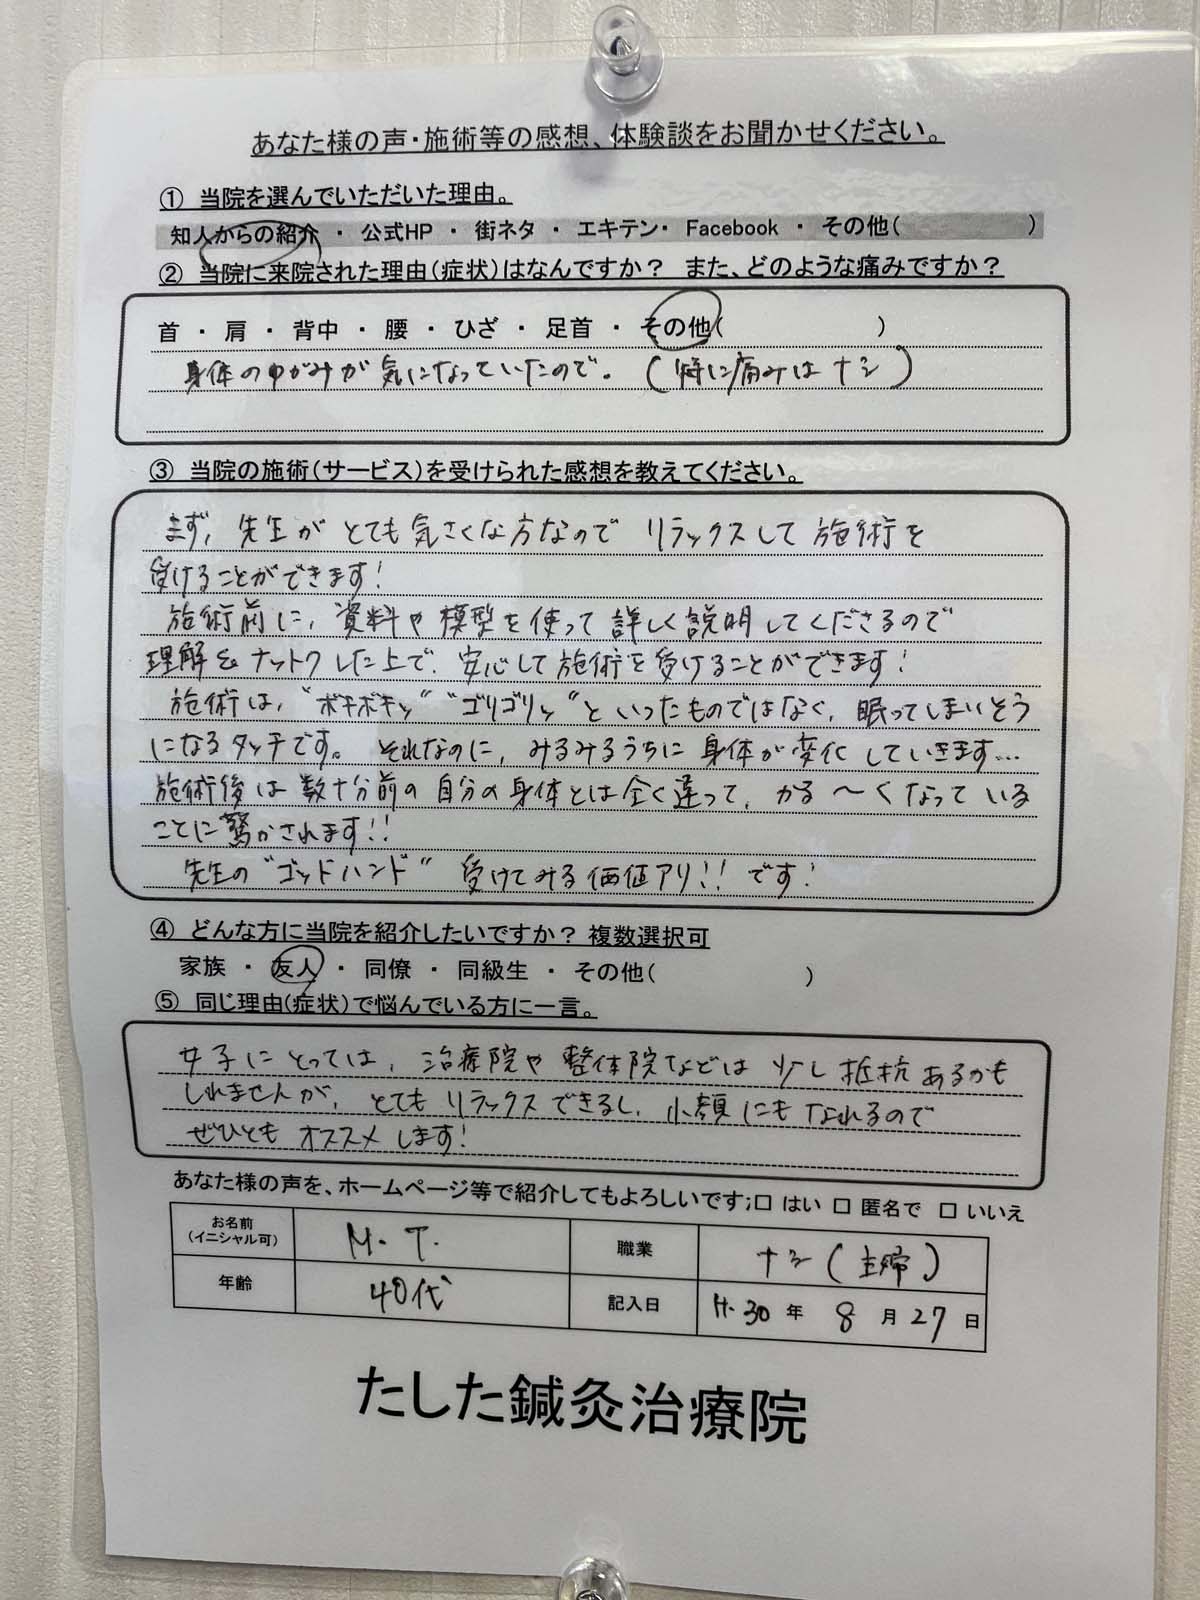 あなた様の声・施術等の感想、体験談をお聞かせください。
① 当院を選んでいただいた理由。
知人からの紹介 ・ 公式HP ・ 街ネタ ・ エキテン・ Facebook ・ その他( )
② 当院に来院された理由(症状)はなんですか? また、どのような痛みですか?
首 ・ 肩 ・ 背中 ・ 腰 ・ ひざ ・ 足首 ・ その他( )
身体のゆがみが気になっていたので。(特に痛みはナシ)
③ 当院の施術(サービス)を受けられた感想を教えてください。
まず、先生がとても気さくな方なのでリラックスして施術を
受けることができます!
施術前に、資料や模型を使って詳しく説明してくださるので
理解&ナットクした上で、安心して施術を受けることができます!
施術は、"ボキボキッ" "ゴリゴリッ"といったものではなく、眠ってしまいそう
になるタッチです。それなのに、みるみるうちに身体が変化していきます…
施術後は数十分前の自分の身体とは全く違って、かる〜くなっている
ことに驚かされます!!
先生の"ゴッドハンド" 受けてみる価値アリ!! です!
④ どんな方に当院を紹介したいですか? 複数選択可
家族 ・ 友人 ・ 同僚 ・ 同級生 ・ その他( )
⑤ 同じ理由(症状)で悩んでいる方に一言。
女子にとっては、治療院や整体院などは少し抵抗あるかも
しれませんが、とてもリラックスできるし、小顔にもなれるので
ぜひともオススメします!
あなた様の声を、ホームページ等で紹介してもよろしいです;□ はい □ 匿名で □ いいえ
お名前(イニシャル可) M.T. 職業 ナシ(主婦)
年齢 40代 記入日 H.30 年 8 月 27 日
たした鍼灸治療院